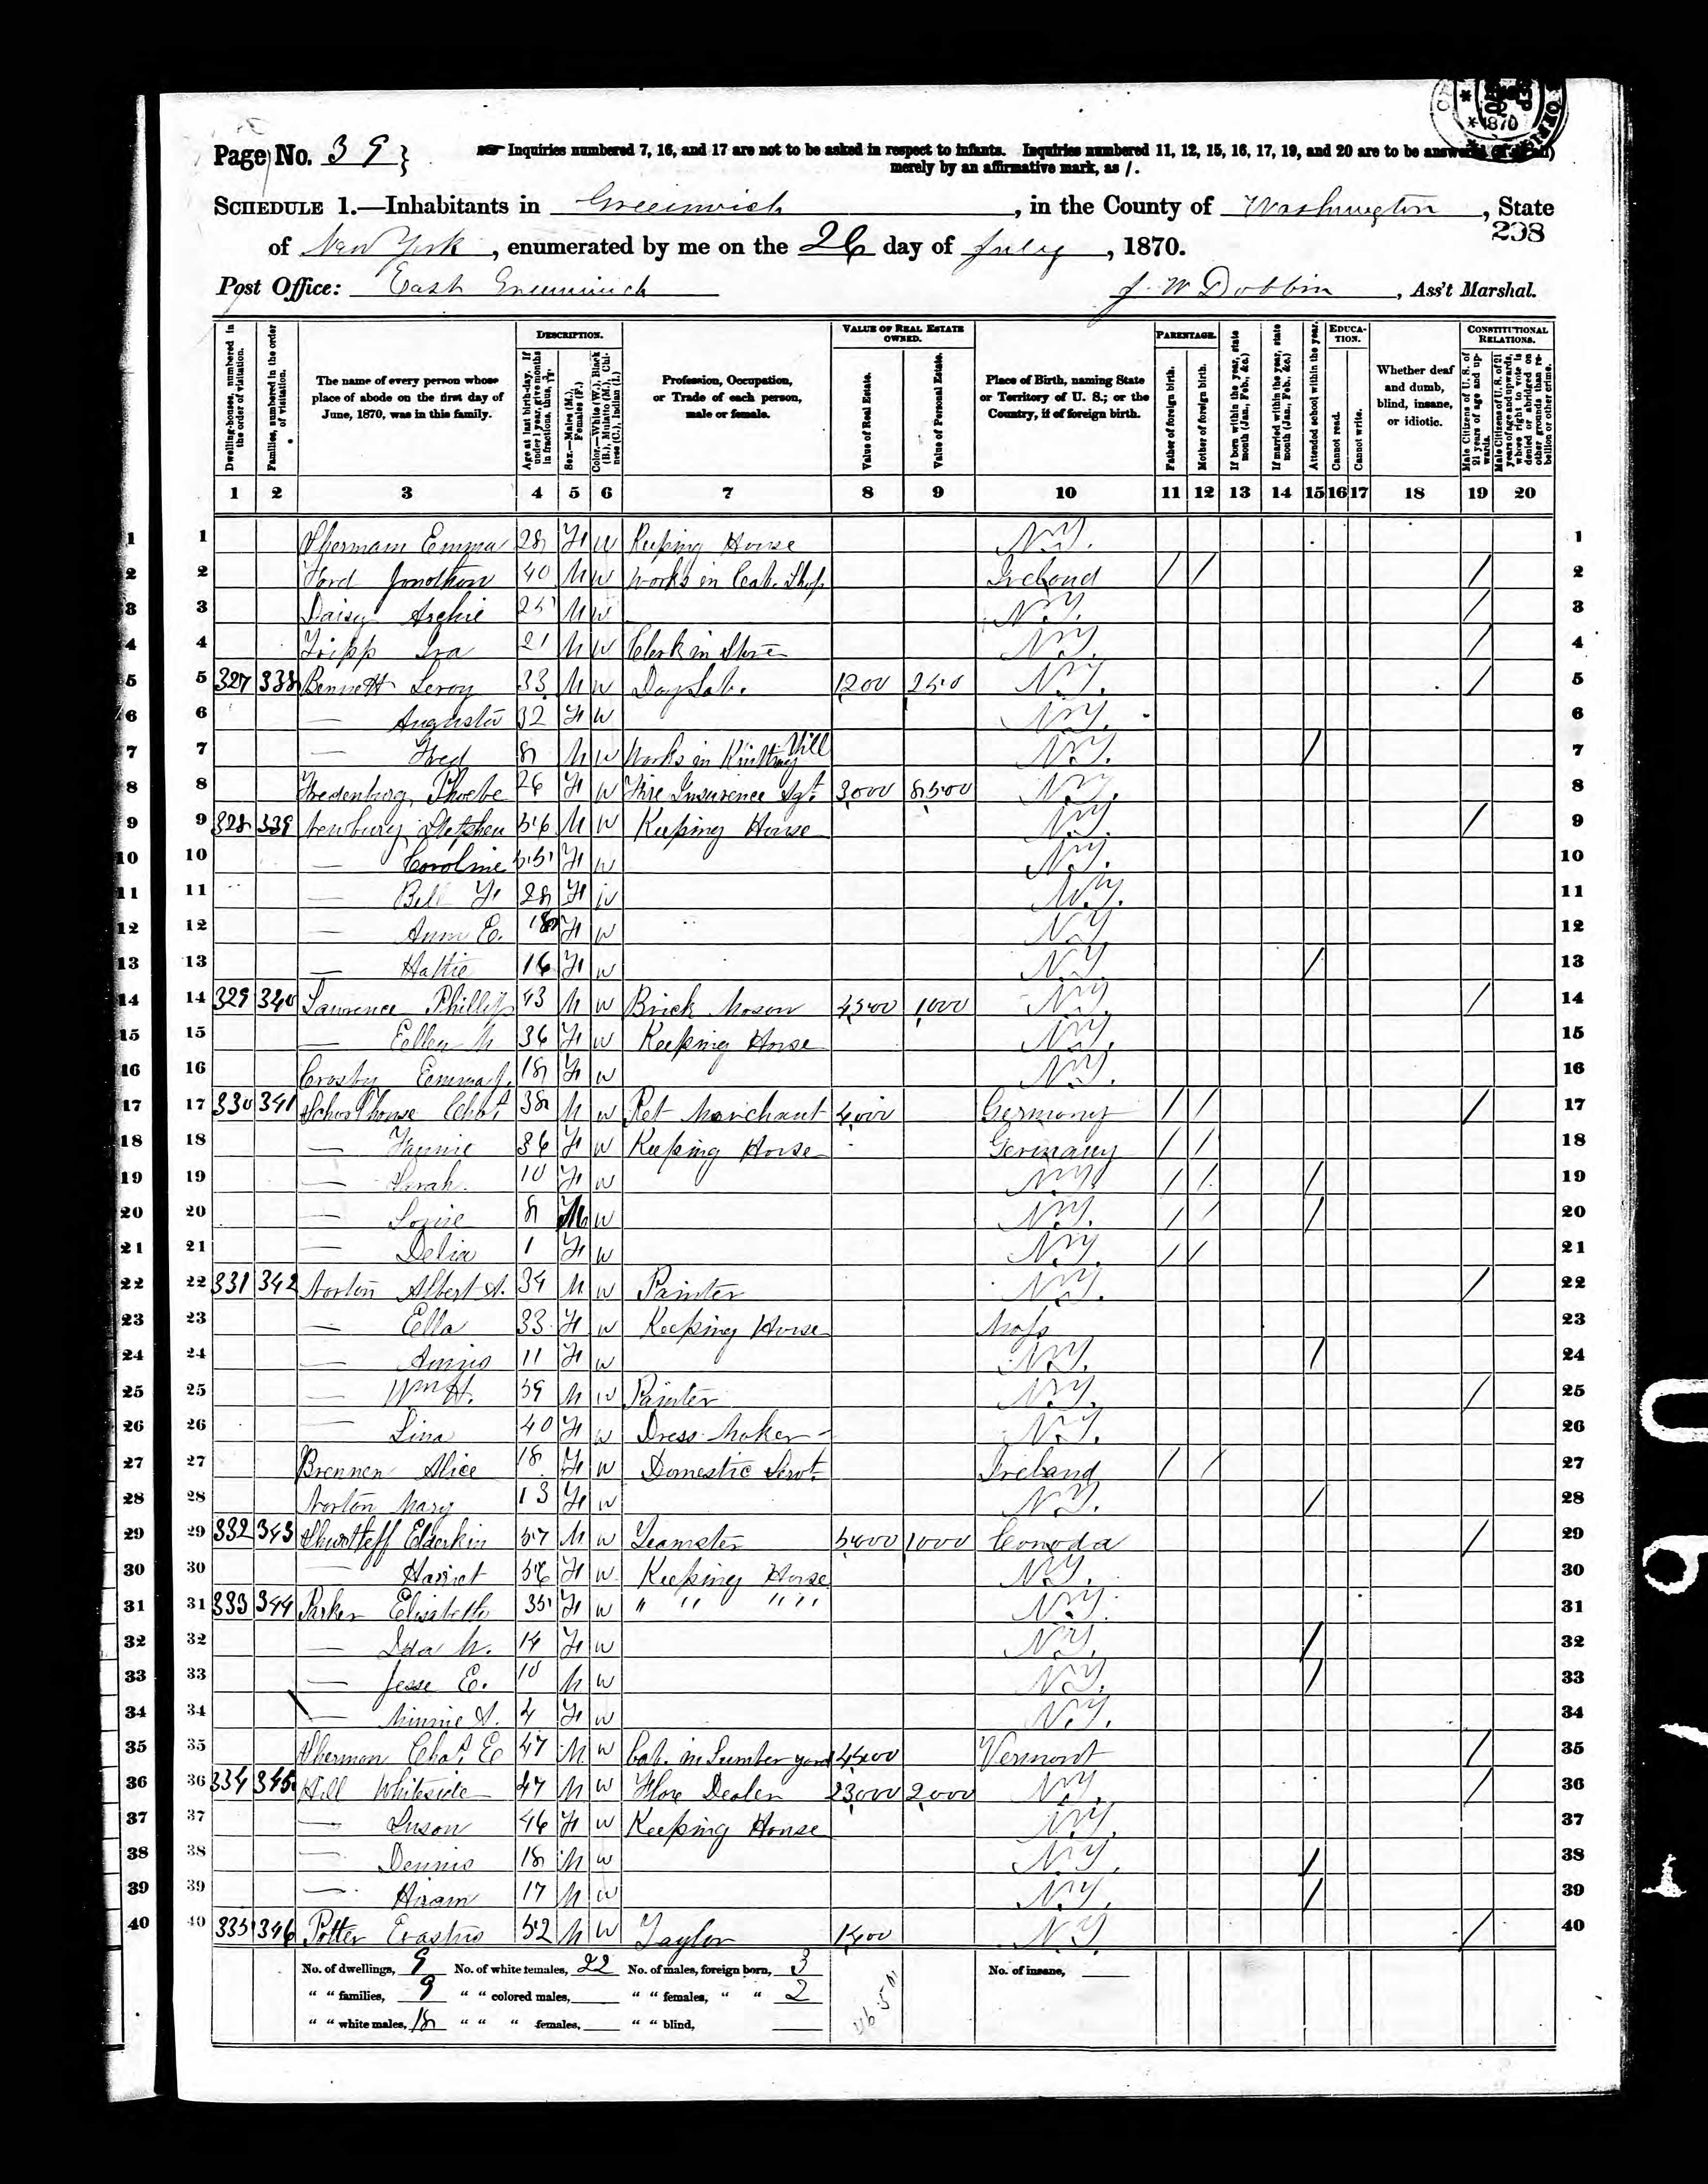 Page No. 39
Inquiries numbered 7, 16, and 17 are not to be asked in respect to infants. Inquiries numbered 11, 12, 15, 16, 17, 19, and 20 are to be answered (if at all)
merely by an affirmative mark, as /.
*1870
SCHEDULE 1.—Inhabitants in Greenwich, in the County of Washington, State
of New York, enumerated by me on the 26 day of July, 1870.
208
Post Office: East Greenwich
J. W Dobbin, Ass't Marshal.
Dwelling-houses, numbered in the order of visitation.
Families, numbered in the order of visitation.
The name of every person whose place of abode on the first day of June, 1870, was in this family.
DESCRIPTION.
Age at last birth-day. If under 1 year, give months in fractions, thus, 3/12.
Sex.—Males (M.), Females (F.)
Color.—White (W.), Black (B.), Mulatto (M.), Chinese (C.), Indian (I.)
Profession, Occupation, or Trade of each person, male or female.
VALUE OF REAL ESTATE OWNED.
Value of Real Estate.
Value of Personal Estate.
Place of Birth, naming State or Territory of U. S.; or the Country, if of foreign birth.
PARENTAGE.
Father of foreign birth.
Mother of foreign birth.
If born within the year, state month (Jan., Feb., &c.)
If married within the year, state month (Jan., Feb., &c.)
Attended school within the year.
EDUCATION.
Cannot read.
Cannot write.
Whether deaf and dumb, blind, insane, or idiotic.
CONSTITUTIONAL RELATIONS.
Male Citizens of U. S. of 21 years of age and upwards.
Male Citizens of U. S. of 21 years of age and upwards, whose right to vote is denied or abridged on other grounds than rebellion or other crime.
1 2 3 4 5 6 7 8 9 10 11 12 13 14 15 16 17 18 19 20
1 Sherman Emma 28 F W Keeping House N.Y. 1
2 Ford Jonothon 40 M W Works in Cab. Shop Ireland / / / 2
3 Daisy Archie 25 M W N.Y. / 3
4 Tripp Ira 21 M W Clerk in Store N.Y. / 4
5 327 338 Bennett Leroy 33 M W Day Lab. 1200 250 N.Y. / 5
6 — Augusta 32 F W N.Y. 6
7 — Fred 8 M W Works in Knitting Mill N.Y. / 7
8 Fredenburg, Phoebe 26 F W Fire Insurence Agt. 3000 8500 N.Y. 8
9 328 339 Newbury Stetphen 56 M W Keeping House N.Y. / 9
10 — Caroline 55 F W N.Y. 10
11 — Bell F 28 F W N.Y. 11
12 — Ann E. 18 F W N.Y 12
13 — Hattie 16 F W N.Y. / 13
14 329 340 Lawrence Phillip 43 M W Brick Mason 4500 1000 N.Y. / 14
15 — Ellen M 36 F W Keeping House N.Y. 15
16 Crosby Emma J. 18 F W N.Y. 16
17 330 341 Schoolhouse Chas 38 M W Ret Merchant 4000 Germany / / / 17
18 — Fannie 36 F W Keeping House Germany / / 18
19 — Sarah 10 F W N.Y. / / / 19
20 — Louise 8 M W N.Y. / / / 20
21 — Delia 1 F W N.Y. / / 21
22 331 342 Norton Albert A. 34 M W Painter N.Y. / 22
23 — Ella 33 F W Keeping House Mass 23
24 — Annis 11 F W N.Y. / 24
25 — Wm H. 39 M W Painter N.Y. / 25
26 — Lina 40 F W Dress Maker N.Y. 26
27 Brennen Alice 18 F W Domestic Servt. Ireland / / 27
28 Norton Mary 13 F W N.Y. / 28
29 332 343 Shurtleff Elderkin 57 M W Teamster 5000 1000 Canada / 29
30 — Harriet 56 F W Keeping House N.Y. 30
31 333 344 Parker Elisabeth 35 F W " " " " N.Y. 31
32 — Ida M. 14 F W N.Y. / 32
33 — Jesse E. 10 M W N.Y. / 33
34 — Minnie A. 4 F W N.Y. 34
35 Sherman Chas. E 47 M W Lab. in Lumber yard 4500 Vermont / 35
36 334 345 Hill Whiteside 47 M W Flore Dealer 23000 2000 N.Y. / 36
37 — Suson 46 F W Keeping House N.Y. 37
38 — Dennis 18 M W N.Y. / 38
39 — Hiram 17 M W N.Y. / 39
40 335 346 Potter Erastus 52 M W Taylor 1400 N.Y / 40
No. of dwellings, 9 No. of white females, 22 No. of males, foreign born, 3 No. of insane,
" " families, 9 " " colored males, " " females, " " 2
" " white males, 18 " " " females, " " blind,